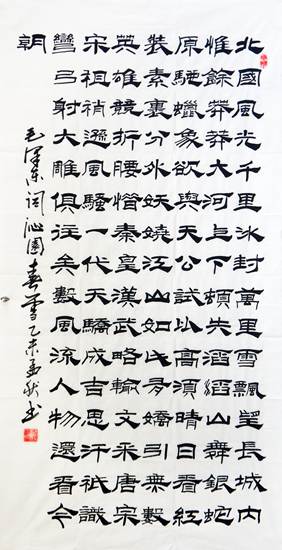 北國風光千里冰封萬里雪飄望長城内
惟餘莽莽大河上下頓失滔滔山舞銀蛇
原馳蠟象欲與天公試比高湏晴日看紅
裝素裹分外妖嬈江山如此多嬌引無數
英雄競折腰惜秦皇漢武略輸文采唐宗
宋祖稍遜風騷一代天驕成吉思汗祇識
彎弓射大雕俱往矣數風流人物還看今
朝
毛澤東詞沁園春雪乙未孟秋書